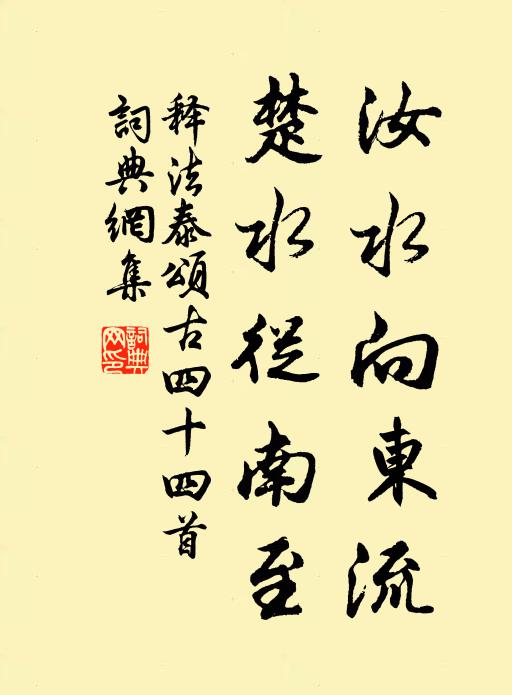 汝水向東流
楚水從南至
释法泰頌古四十四首
詞典網集
詞典網印